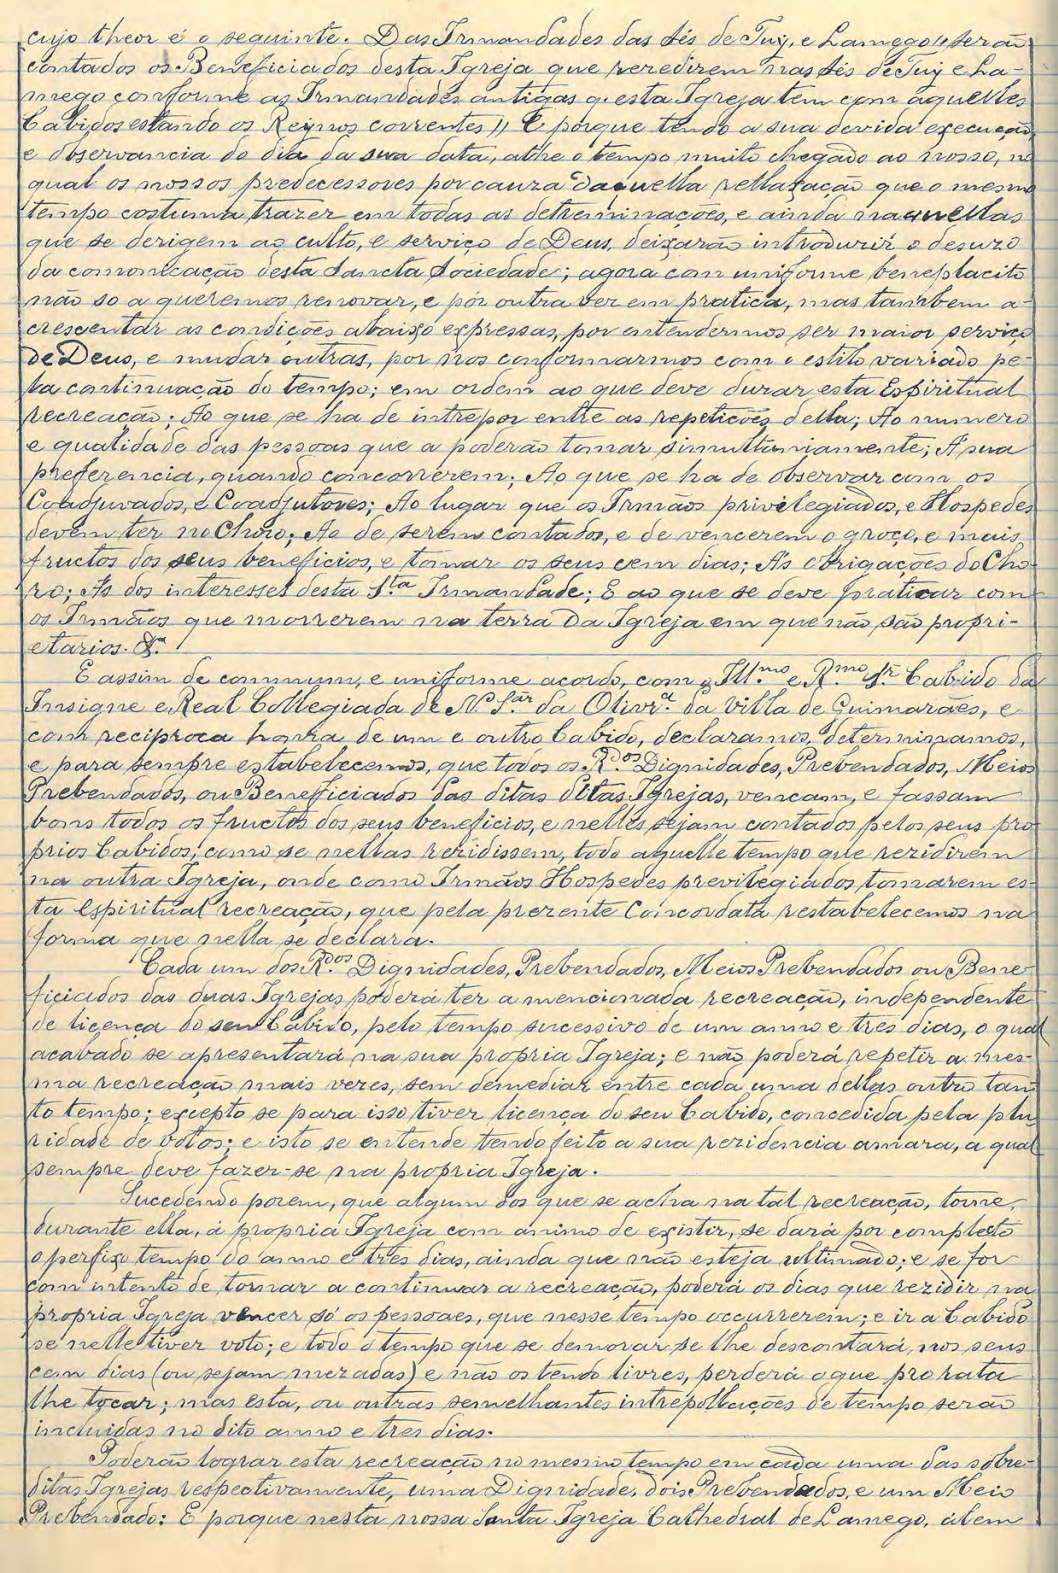 cujo theor é o seguinte. Das Irmandades das Sés de Tuy, e Lamego // serão
contados os Beneficiados desta Igreja que rezedirem nas Sés de Tuy e La-
mego conforme as Irmandades antigas q. esta Igreja tem com aquelles
Cabidos estando os Reynos correntes // E porque tendo a sua devida execução,
e observancia do dia da sua data, athe o tempo muito chegado ao nosso, no
qual os nossos predecessores por cauza daquella rellaxação que o mesmo
tempo costuma trazer em todas as detreminações, e ainda naquellas
que se derigem ao culto, e serviço de Deus, deixarão introduzir o desuzo
da comonicação desta Sancta Sociedade; agora com uniforme beneplacito
não so a queremos renovar, e pôr outra vez em pratica, mas tambem a-
crescentar as condições abaixo expressas, por entendermos ser maior serviço
de Deus, e mudar outras, por nos conformarmos com o estilo variado pe-
la continuação do tempo; em ordem ao que deve durar esta Espiritual
recreação; Ao que se ha de intrepor entre as repetições della; Ao numero
e qualidade das pessoas que a poderão tomar simultaniamente; Á sua
preferencia, quando concorrerem; Ao que se ha de observar com os
Coadjuvados, e Coadjutores; Ao lugar que os Irmãos privilegiados, e Hospedes
devem ter no Choro; Ao de serem contados, e de vencerem o groço, e mais
fructos dos seus beneficios, e tomar os seus cem dias; Ás obrigações do Cho-
ro; Ás dos interesses desta S.ta Irmandade; E ao que se deve praticar com
os Irmãos que morrerem na terra da Igreja em que não são propri-
etarios. &.ª
E assim de commum, e uniforme acordo, com o Ill.mo e R.mo Sr Cabido da
Insigne e Real Collegiada de N.ª S.ar da Olivr.ª da Villa de Guimarães, e
com reciproca honra de um e outro Cabido, declaramos, determinamos,
e para sempre estabelecemos, que todos os R.dos Dignidades, Prebendados, Meios
Prebendados, ou Beneficiados das ditas ditas Igrejas, vencam, e fassam
bons todos os fructos dos seus beneficios, e nelles sejam contados pelos seus pro
prios Cabidos, como se nellas rezidissem, todo aquelle tempo que rezidirem
na outra Igreja, onde como Irmãos Hospedes previlegiados tomarem es-
ta Espiritual recreação, que pela prezente Concordata restabelecemos na
forma que nella se declara.
Cada um dos R.dos Dignidades, Prebendados, Meios Prebendados ou Bene-
ficiados das duas Igrejas poderá ter a mencionada recreação, independente
de licença do seu Cabido, pelo tempo sucessivo de um anno e tres dias, o qual
acabado se apresentará na sua propria Igreja; e não poderá repetir a mes-
ma recreação mais vezes, sem demediar entre cada uma dellas outro tan-
to tempo; excepto se para isso tiver licença do seu Cabido, concedida pela plu
ridade de votos; e isto se entende tendo feito a sua rezidencia amara, a qual
sempre deve fazer-se na propria Igreja.
Sucedendo porem, que algum dos que se acha na tal recreação, torne,
durante ella, á propria Igreja com animo de existir, se dará por completo
o perfixo tempo do anno e tres dias, ainda que não esteja ultimado; e se for
com intento de tornar a continuar a recreação, poderá os dias que rezidir na
propria Igreja vencer só os pessoaes, que nesse tempo occurrerem; e ir a Cabido
se nelle tiver voto; e todo o tempo que se demorar se lhe descontará, nos seus
cem dias (ou sejam mezadas) e não os tendo livres, perderá o que pro rata
lhe tocar; mas esta, ou outras semelhantes intrepollações de tempo serão
incluidas no dito anno e tres dias.
Poderão lograr esta recreação no mesmo tempo em cada uma das sobre-
ditas Igrejas respectivamente, uma Dignidade, dois Prebendados, e um Meio
Prebendado: E porque nesta nossa Santa Igreja Cathedral de Lamego, alem